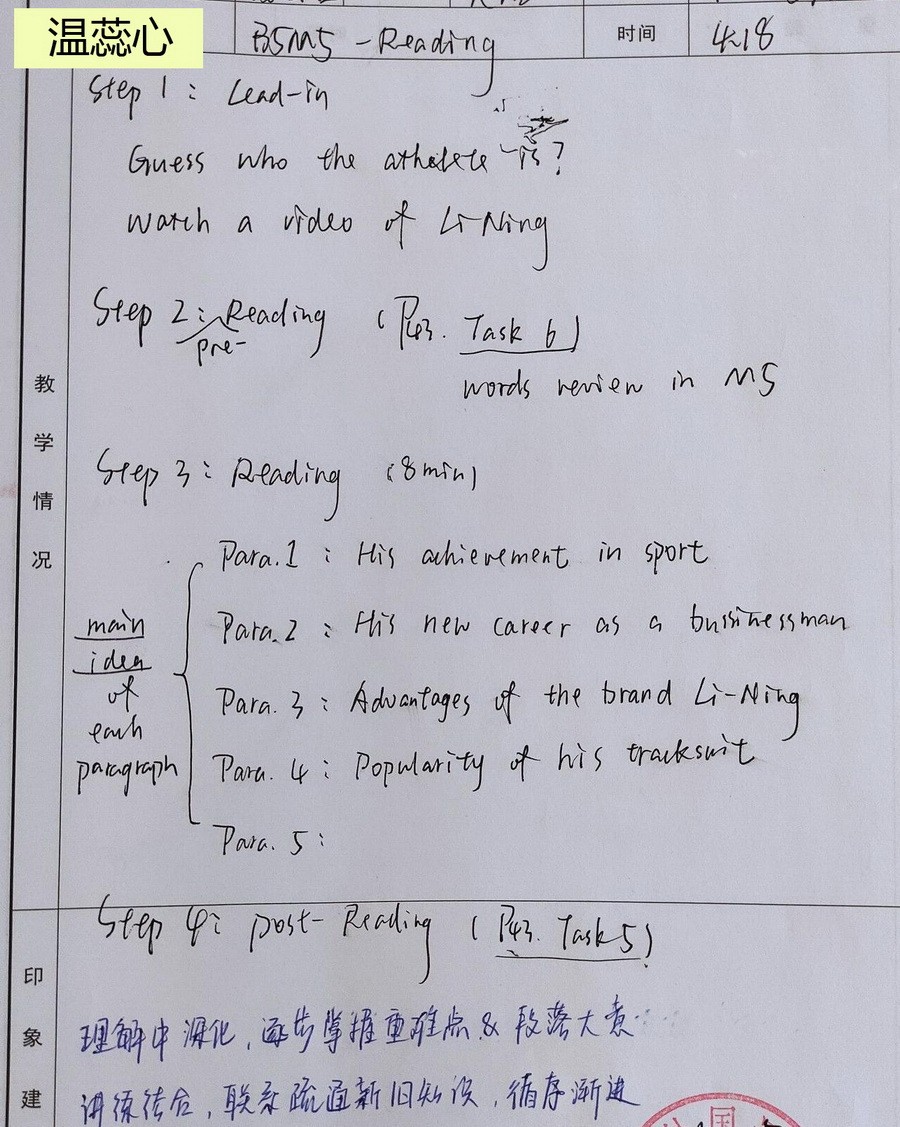 温蕊心
B5M5 - Reading 时间 4.18
Step 1: Lead-in
Guess who the athelete is?
Watch a video of Li-Ning
Step 2: Reading (P43. Task 6)
pre-
words review in M5
Step 3: Reading (8min)
Para.1: His achievement in sport
Para.2: His new career as a bussinessman
Para.3: Advantages of the brand Li-Ning
Para.4: Popularity of his tracksuit
Para.5:
main
idea
of
each
paragraph
教学情况
Step 4: post-Reading (P43. Task5)
理解中深化,逐步掌握重难点&段落大意
讲练结合,联系疏通新旧知识,循序渐进
印象建
国